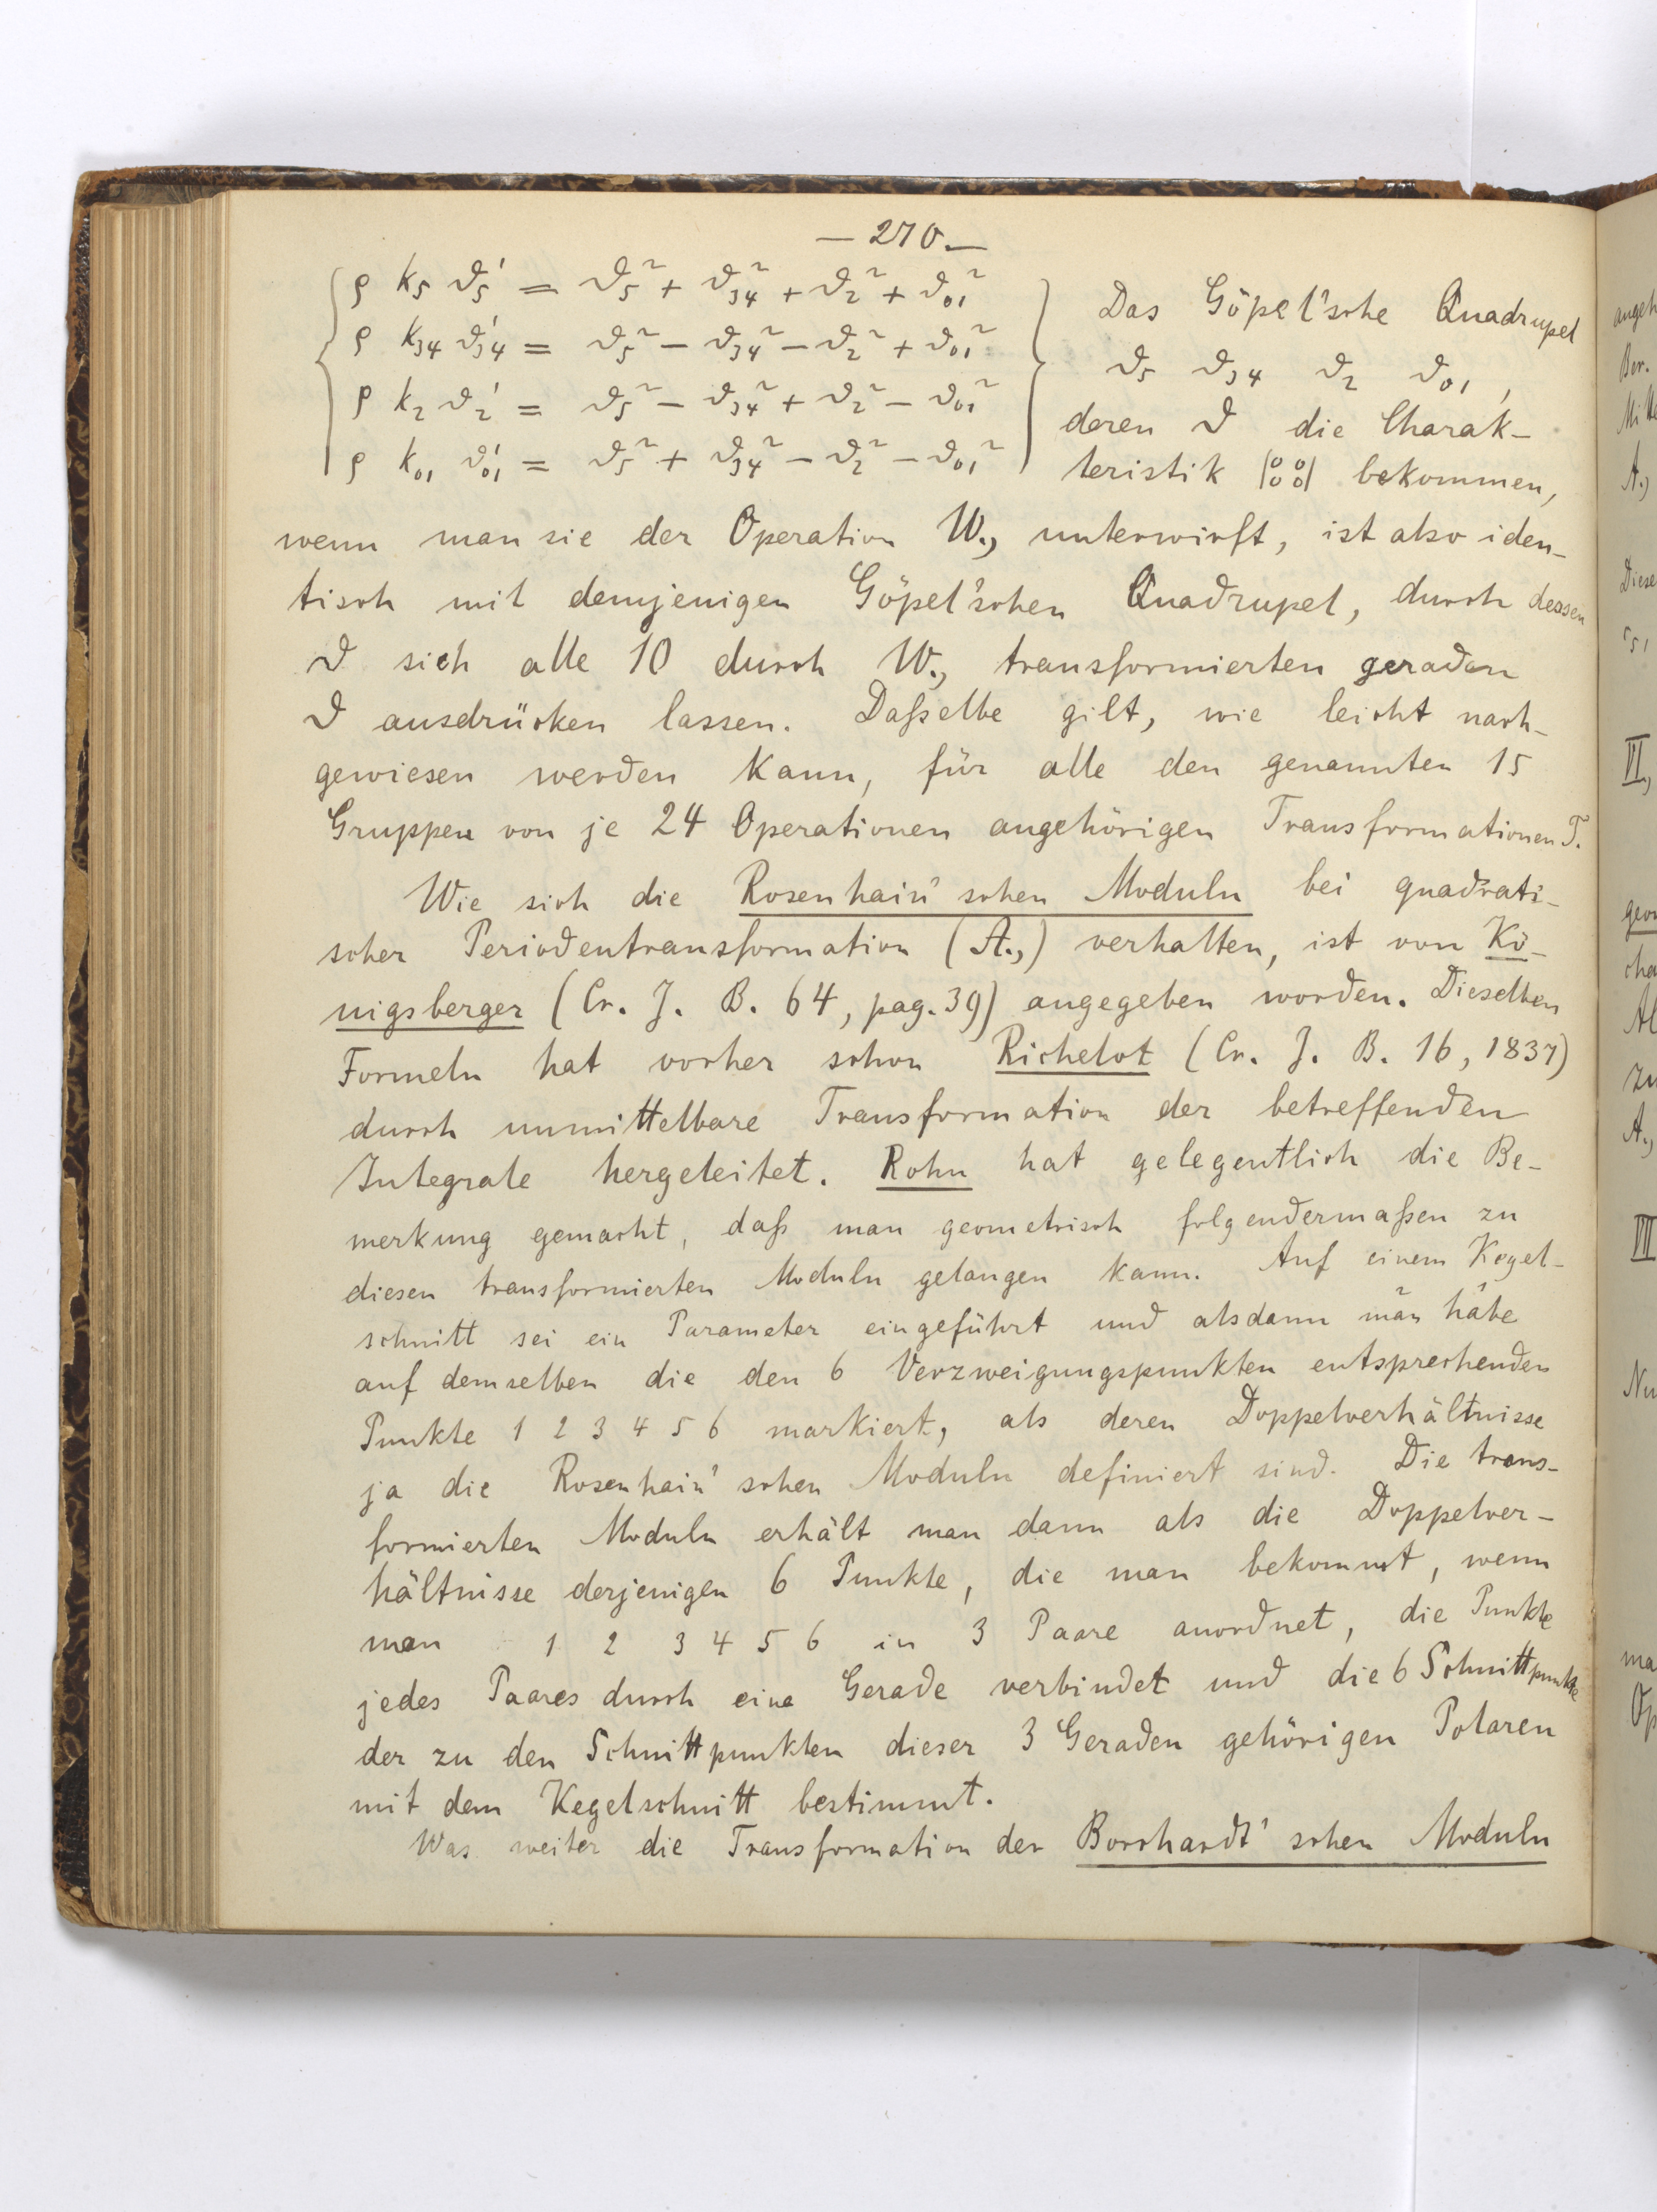 — 270. —
ρ k₅ ϑ₅' = ϑ₅² + ϑ₃₄² + ϑ₂² + ϑ₀₁²
ρ k₃₄ ϑ₃₄' = ϑ₅² − ϑ₃₄² − ϑ₂² + ϑ₀₁²
ρ k₂ ϑ₂' = ϑ₅² − ϑ₃₄² + ϑ₂² − ϑ₀₁²
ρ k₀₁ ϑ₀₁' = ϑ₅² + ϑ₃₄² − ϑ₂² − ϑ₀₁²
Das Göpel'sche Quadrupel
ϑ₅ ϑ₃₄ ϑ₂ ϑ₀₁,
deren ϑ die Charak-
teristik |00 00| bekommen,
wenn man sie der Operation W., unterwirft, ist also iden-
tisch mit demjenigen Göpel'schen Quadrupel, durch dessen
ϑ sich alle 10 durch W., transformierten geraden
ϑ ausdrücken lassen. Daßelbe gilt, wie leicht nach-
gewiesen werden kann, für alle den genannten 15
Gruppen von je 24 Operationen angehörigen Transformationen T.
Wie sich die Rosenhain'schen Moduln bei quadrati-
scher Periodentransformation (A.,) verhalten, ist von Kö-
nigsberger (Cr. J. B. 64, pag. 39) angegeben worden. Dieselben
Formeln hat vorher schon Richelot (Cr. J. B. 16, 1837)
durch unmittelbare Transformation der betreffenden
Integrale hergeleitet. Rohn hat gelegentlich die Be-
merkung gemacht, daß man geometrisch folgendermaßen zu
diesen transformierten Moduln gelangen kann. Auf einem Kegel-
schnitt sei ein Parameter eingeführt und alsdann man habe
auf demselben die den 6 Verzweigungspunkten entsprechenden
Punkte 1 2 3 4 5 6 markiert, als deren Doppelverhältnisse
ja die Rosenhain'schen Moduln definiert sind. Die trans-
formierten Moduln erhält man dann als die Doppelver-
hältnisse derjenigen 6 Punkte, die man bekommt, wenn
man 1 2 3 4 5 6 in 3 Paare anordnet, die Punkte
jedes Paares durch eine Gerade verbindet und die 6 Schnittpunkte
der zu den Schnittpunkten dieser 3 Geraden gehörigen Polaren
mit dem Kegelschnitt bestimmt.
Was weiter die Transformation der Borchardt'schen Moduln